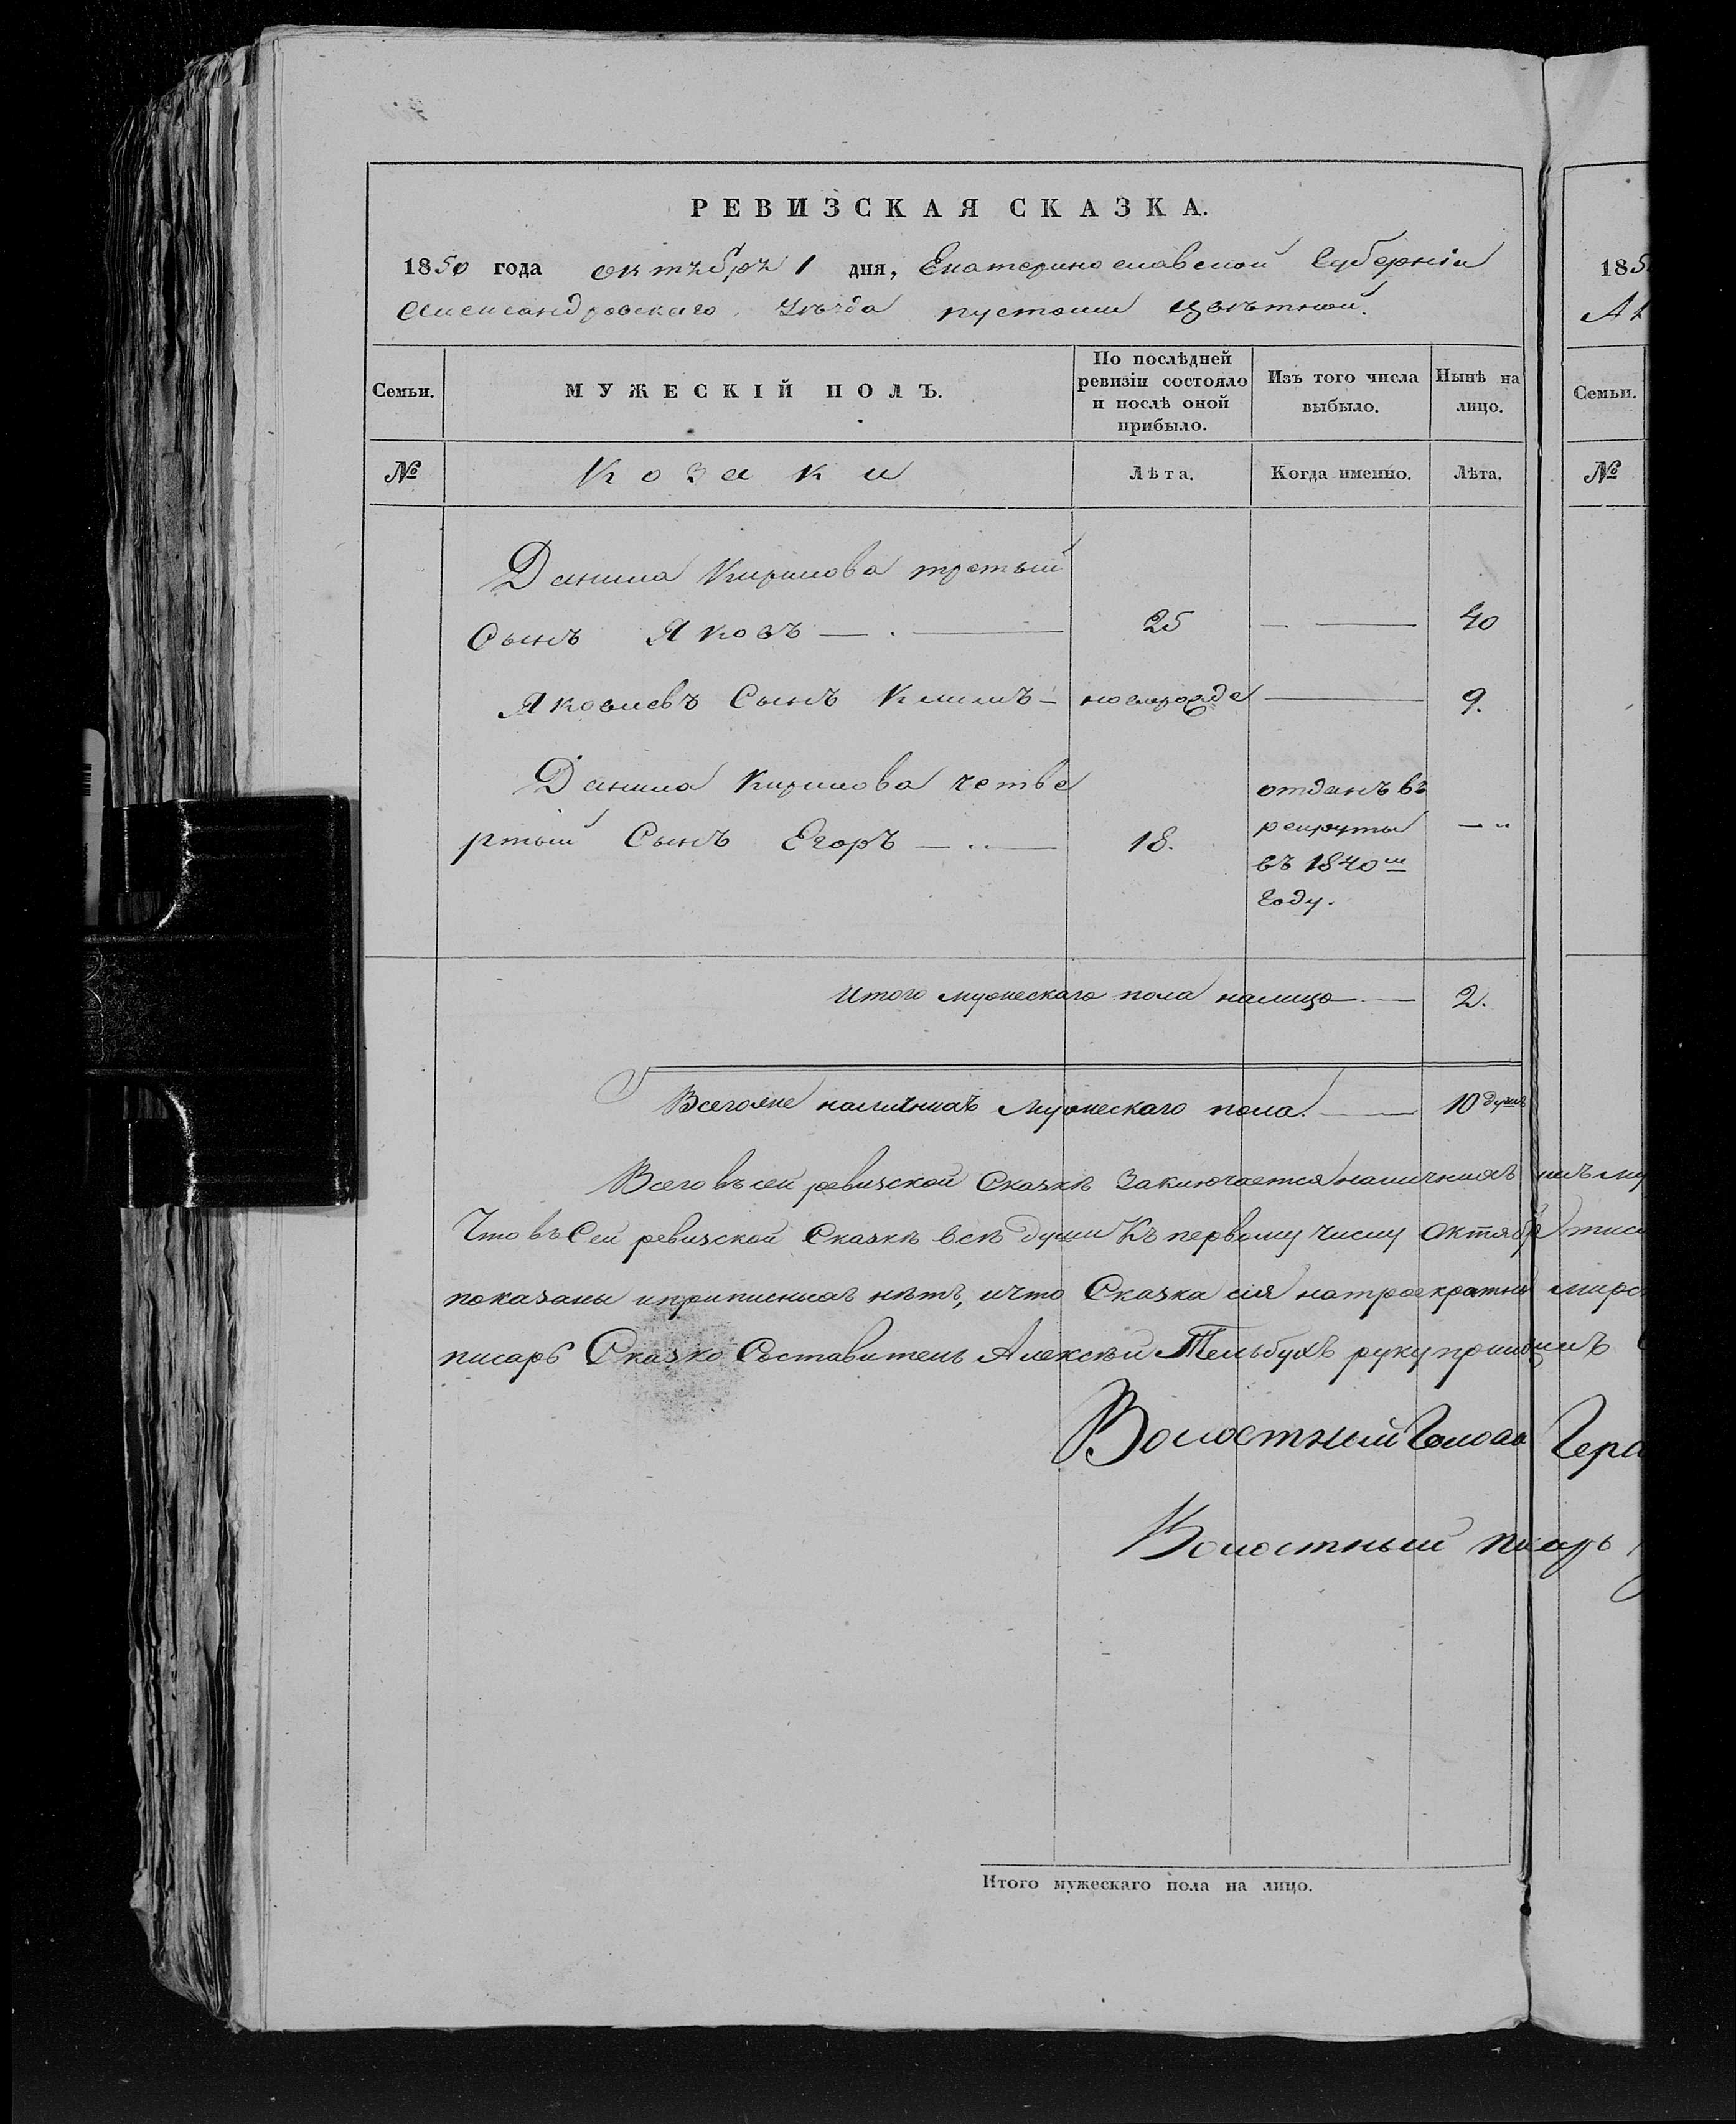 РЕВИЗСКАЯ СКАЗКА.
1850 года октября 1 дня, Екатеринославской Губерніи
Александровскаго Уѣзда пустоши Цвѣтной.
Семьи.
МУЖЕСКІЙ ПОЛЪ.
По послѣдней ревизіи состояло и послѣ оной прибыло.
Изъ того числа выбыло.
Нынѣ на лицо.
№
Козаки
Лѣта.
Когда именно.
Лѣта.
Данила Кирилова третьий
Сынъ Яковъ 25 40
Яковлевъ Сынъ Климъ новорожде 9.
Данила Кирилова четве
ртый Сынъ Егоръ 18.
отданъ въ
рекруты
въ 1840м
Году.
Итого мужескаго пола налицо 2.
Всего же наличныхъ мужескаго пола. 10 душъ
Всего въ сей ревизской Сказкѣ Заключается наличныхъ
Что въ Сей ревизской Сказкѣ всѣ души Къ первому числу Октября
показаны и приписныхъ нѣтъ, и что Сказка сія
писарь Сказко Составитель Алексѣй руку
Волостный Голова
Волостный писарь
Итого мужескаго пола на лицо.
185
Семьи.
№